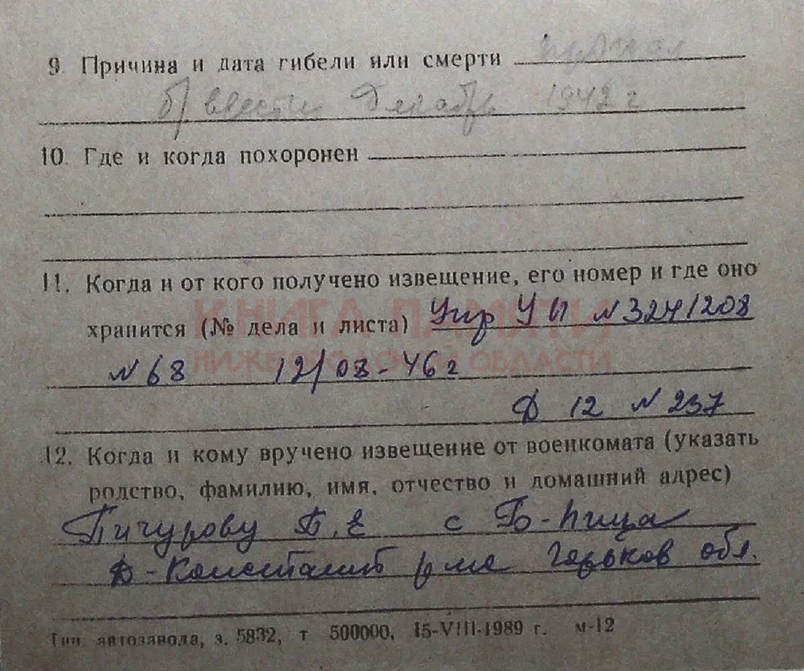 9. Причина и дата гибели или смерти пропал
б/ вести Декабрь 1942 г
10. Где и когда похоронен
11. Когда и от кого получено извещение, его номер и где оно
КНИГА ПАМЯТИ
хранится (№ дела и листа) Упр УП N 3241208
НИЖЕГОРОДСКОЙ ОБЛАСТИ
N 68 12/08-46 г
Д 12 N 237
12. Когда и кому вручено извещение от военкомата (указать
родство, фамилию, имя, отчество и домашний адрес)
Пичурову П.Е с Б-Пица
Д-Констант р-на Горьков обл.
Тип. автозавода, з. 5832, т 500000, 15-VIII-1989 г. м-12